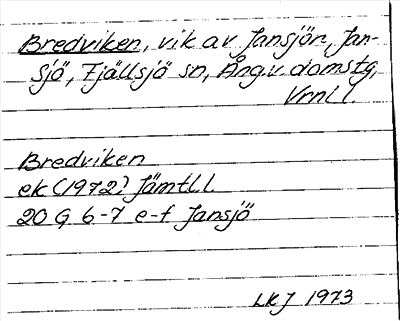 Bredviken, vik av Jansjön, Jan-
sjö, Fjällsjö sn, Ång.v. domstg,
Vrnl l.
Bredviken
ek (1972) Jämtl l.
20 G 6-7 e-f Jansjö
LKJ 1973